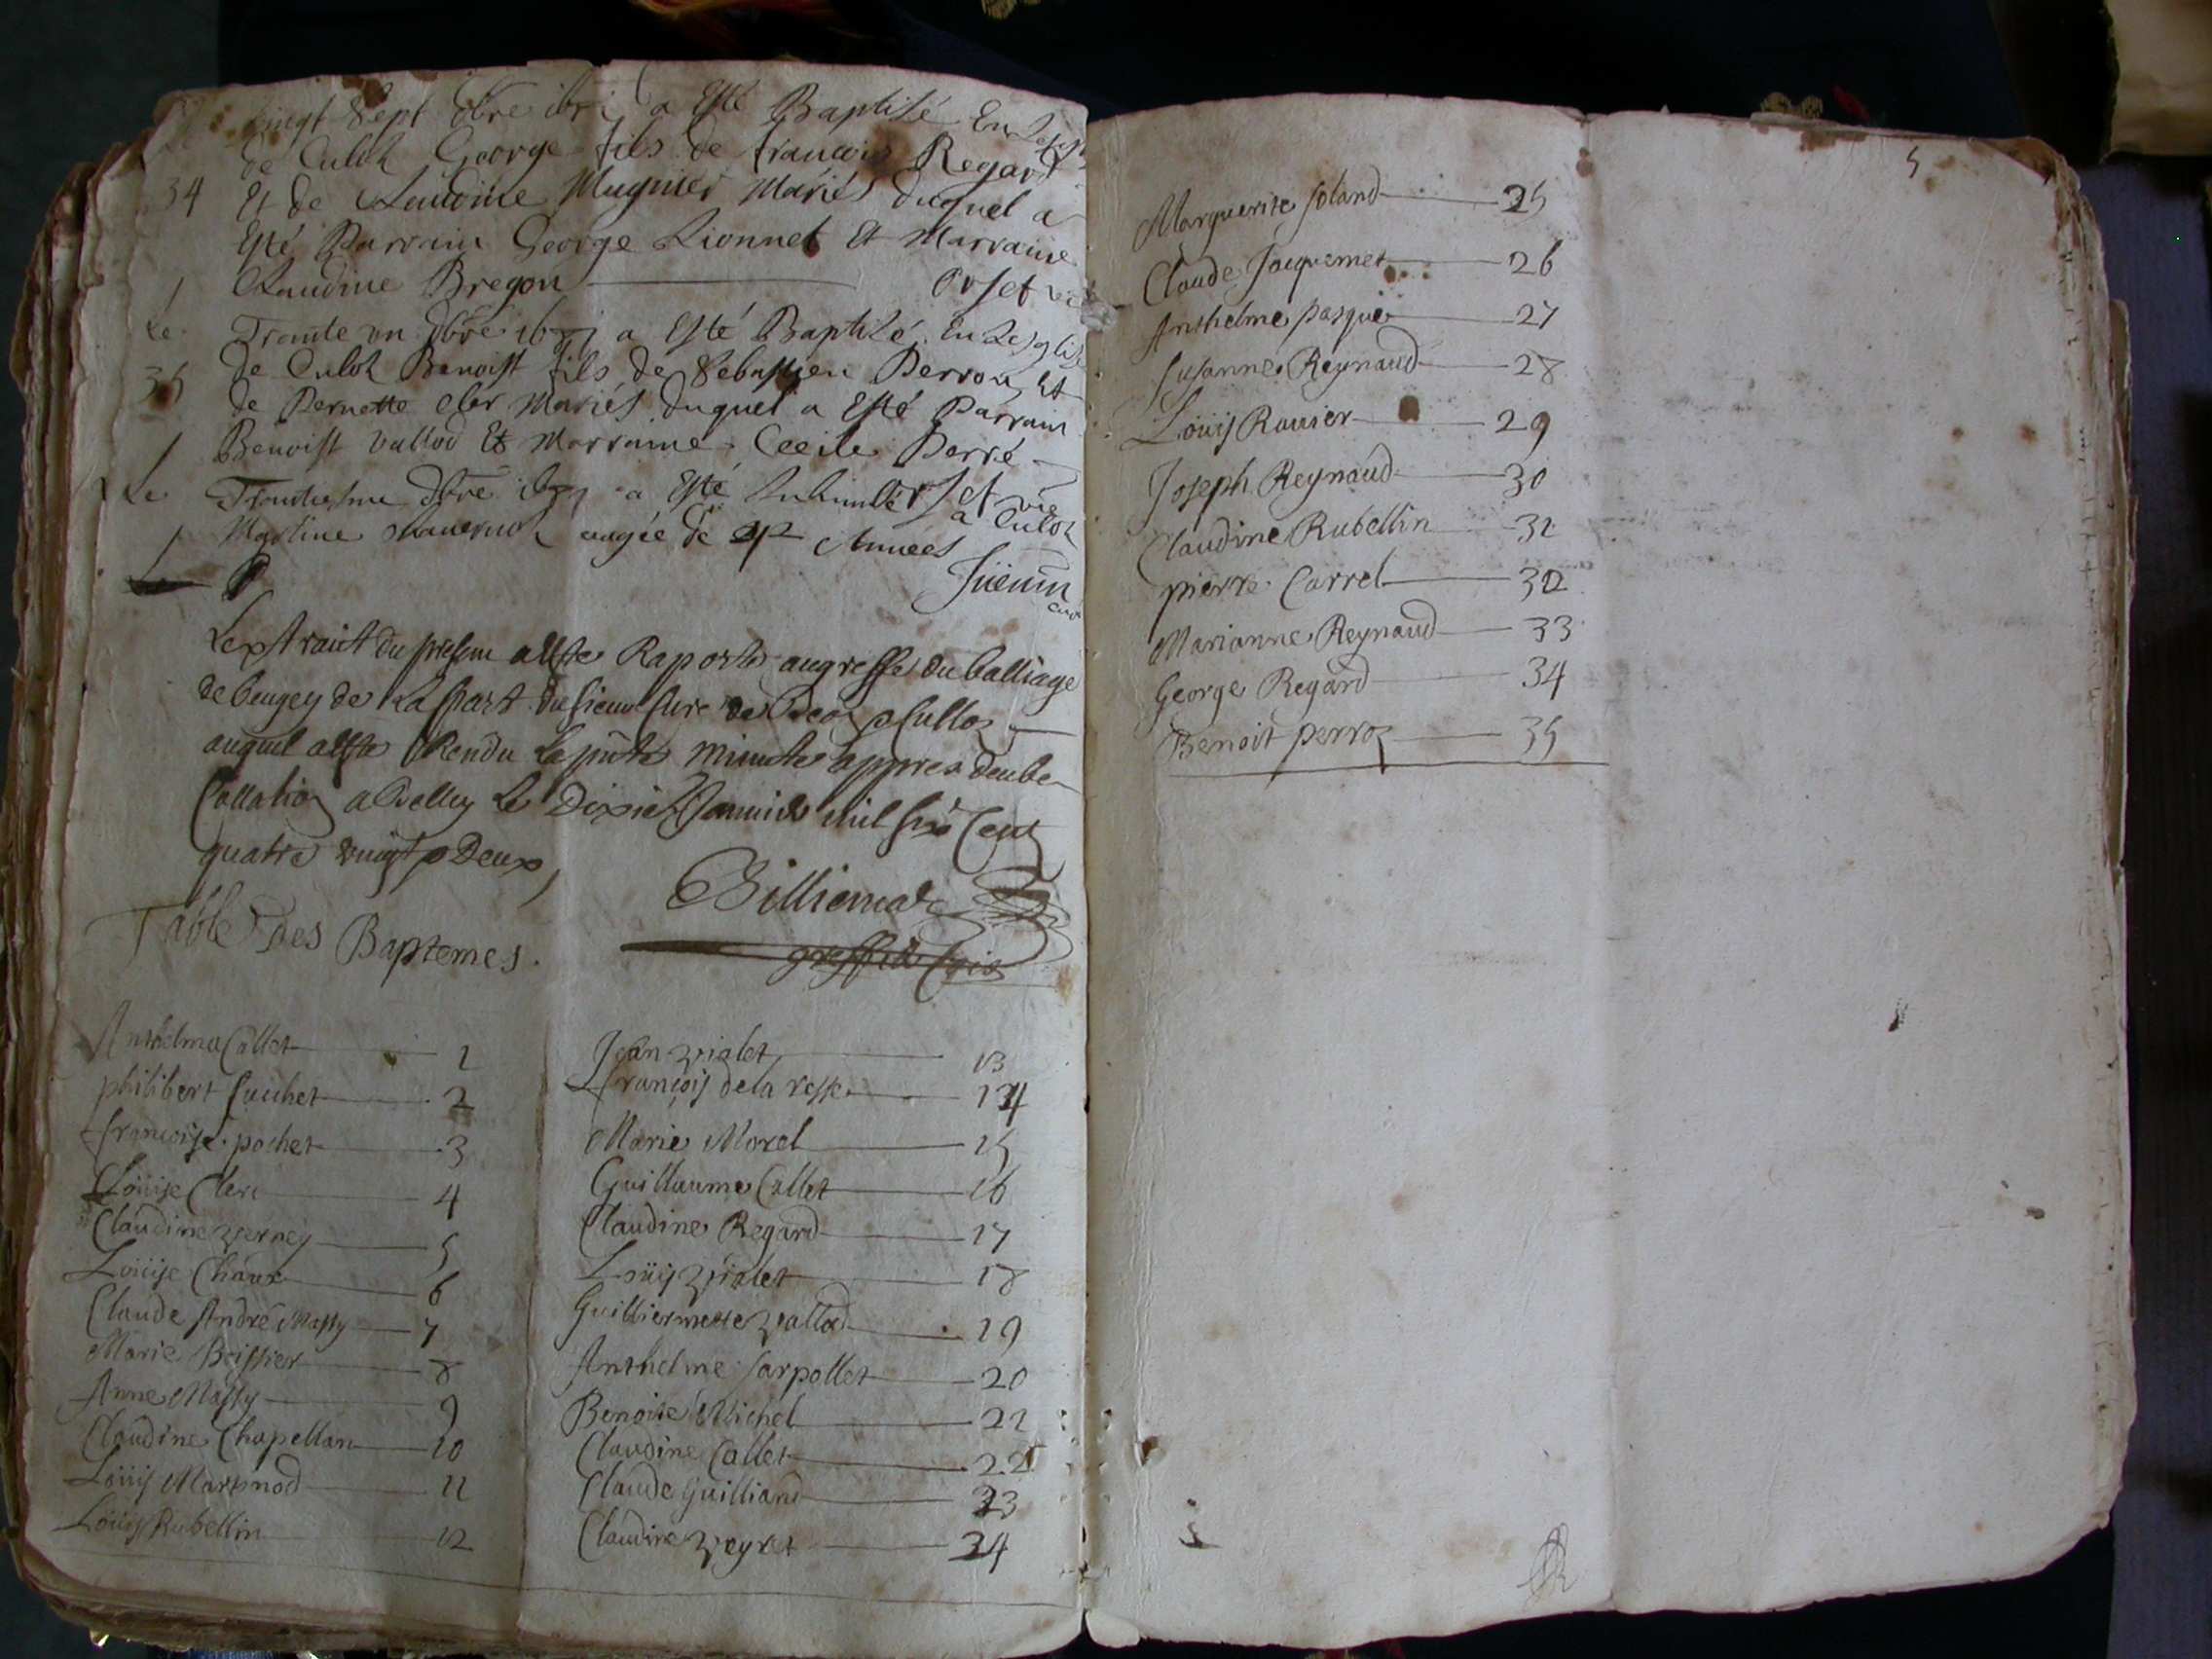 vingt Sept Xbre a Esté Baptisé En
de Culoz George fils de francois Regard
34 Et de Claudine Mugnier Mariés duquel a
Esté Parrain George Lionnet Et Marraine
1 Claudine Bregon Orset vic
Le Trante un Xbre a Esté Baptisé En Lesglise
de Culoz Benoist fils de Sebastien Perroz Et
35 de Pernette cler Mariés duquel a Esté Parrain
1 Benoist vallod Et Marraine Cecile Perré
Orset vic
Le Trantiesme Xbre a Esté Inhumée a Culoz
1 Martine aagée de Annees
cure
Lextraict du present a este Raporte au greffe du balliage
de beugey de La part du sieur Cure de Beon Culloz
auquel a este Rendu la pnte minute appres deube
Collation a Belley le Dixie Janvier mil six Cent
quatre vingt Deux
Billiemaz
greffier
Table Des Baptemes.
Anthelma Callet 1
philibert suchet 2
françoise pochet 3
Loüise Clerc 4
Claudine verney 5
Loüise Chaux 6
Claude André Massy 7
Marie Boissier 8
Anne Massy 9
Claudine Chapellan 10
Loüis Martinod 11
Loüis Rubellin 12
Jean vialet 13
François de la resse 14
Marie Morel 15
Guillaume Callet 16
Claudine Regard 17
Loüis vialet 18
Guilliermette vallod 19
Anthelme Carpollet 20
Benoise Michel 21
Claudine Callet 22
Claude Guilliand 23
Claudine veyret 24
5
Marguerite soland 25
Claude Jacquemet 26
Anthelme pasquè 27
Susanne Reynaud 28
Loüis Ravier 29
Joseph Reynaud 30
Claudine Rubellin 31
pierre Carrel 32
Marianne Reynaud 33
George Regard 34
Benoit perroz 35